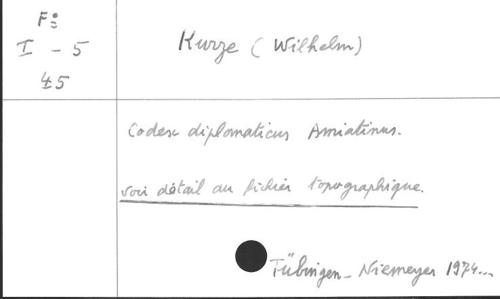 F:
I - 5
45
Kurze (Wilhelm)
Codex diplomaticus Amiatinus.
voir détail au fichier topographique.
Tübingen - Niemeyer 1974...